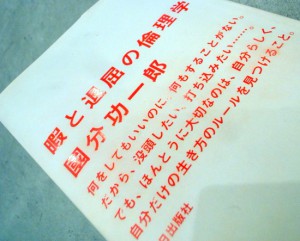 暇と退屈の倫理学
國分功一郎
何をしてもいいのに、何もすることがない。
だから、没頭したい、打ち込みたい……。
でも、ほんとうに大切なのは、自分らしく、
自分だけの生き方のルールを見つけること。
日出版社